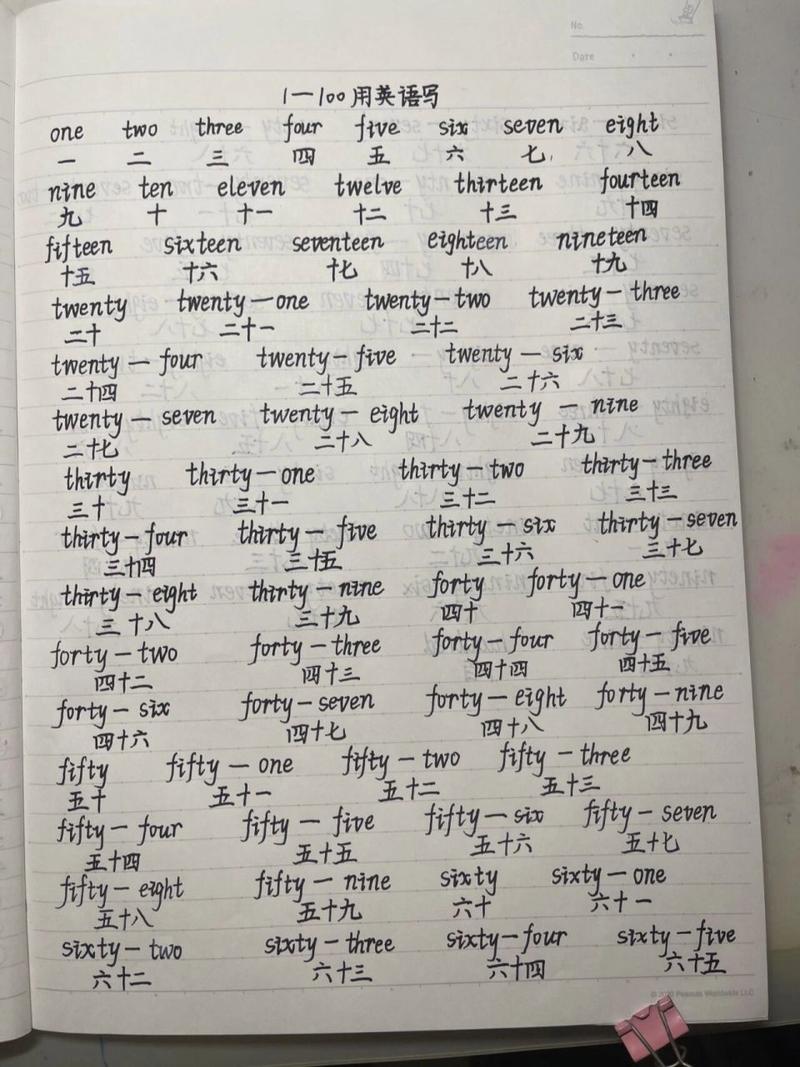 No.
Date
1一100用英语写
one two three four five six seven eight
一 二 三 四 五 六 七 八
nine ten eleven twelve thirteen fourteen
九 十 十一 十二 十三 十四
fifteen sixteen seventeen eighteen nineteen
十五 十六 十七 十八 十九
twenty twenty—one twenty—two twenty—three
二十 二十一 二十二 二十三
twenty—four twenty—five twenty—six
二十四 二十五 二十六
twenty—seven twenty—eight twenty—nine
二十七 二十八 二十九
thirty thirty—one thirty—two thirty—three
三十 三十一 三十二 三十三
thirty—four thirty—five thirty—six thirty—seven
三十四 三十五 三十六 三十七
thirty—eight thirty—nine forty forty—one
三十八 三十九 四十 四十一
forty—two forty—three forty—four forty—five
四十二 四十三 四十四 四十五
forty—six forty—seven forty—eight forty—nine
四十六 四十七 四十八 四十九
fifty fifty—one fifty—two fifty—three
五十 五十一 五十二 五十三
fifty—four fifty—five fifty—six fifty—seven
五十四 五十五 五十六 五十七
fifty—eight fifty—nine sixty sixty—one
五十八 五十九 六十 六十一
sixty—two sixty—three sixty—four sixty—five
六十二 六十三 六十四 六十五
Peanuts Worldwide LLC